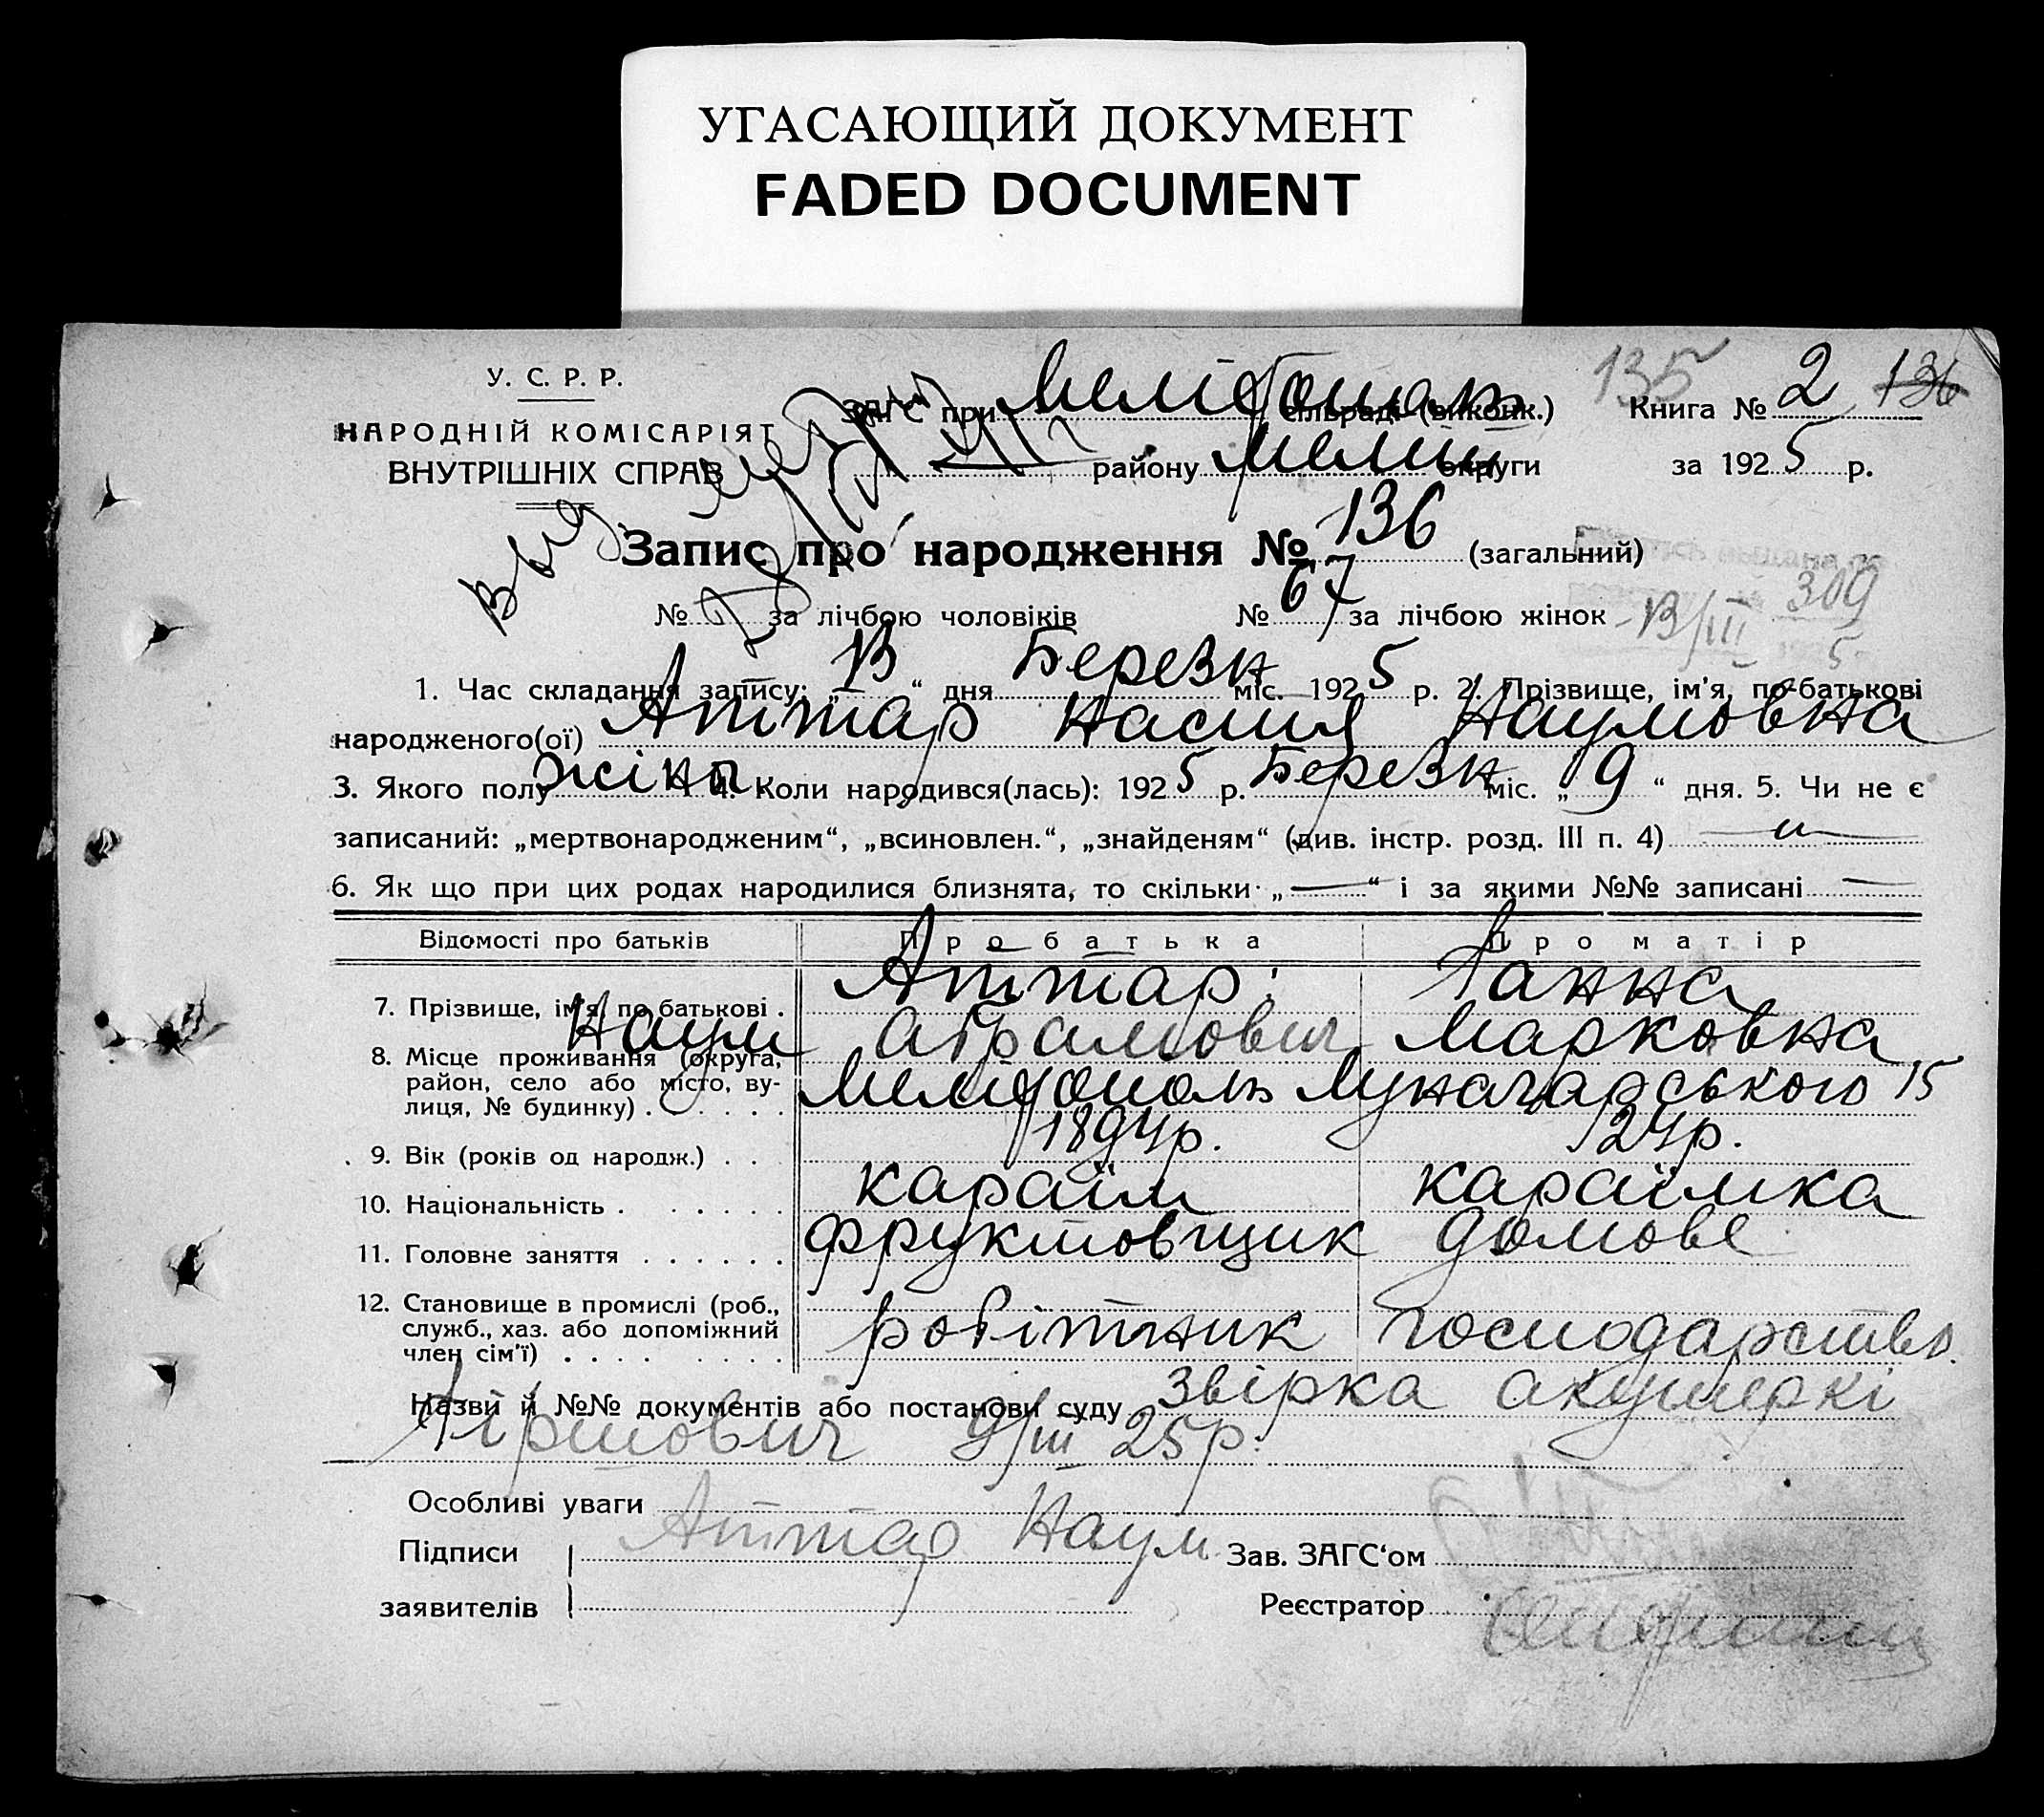 УГАСАЮЩИЙ ДОКУМЕНТ
FADED DOCUMENT
У. С. Р. Р.
НАРОДНІЙ КОМІСАРІЯТ
ВНУТРІШНІХ СПРАВ
ЗАГС при Мелітополь сільраді (виконк.)
району Меліт округи
135
Книга № 2 136
за 1925 р.
Запис про народження № 136 (загальний)
№ за лічбою чоловіків № 67 за лічбою жінок
13/III 309
5
1. Час складання запису: „13“ дня Березн міс. 1925 р. 2. Прізвище, ім'я, по-батькові
народженого(ої) Аттар Настя Наумовна
3. Якого полу жіноч. 4. Коли народився(лась): 1925 р. Березн міс. „9“ дня. 5. Чи не є
записаний: „мертвонародженим“, „всиновлен.“, „знайденям“ (див. інстр. розд. III п. 4)
6. Як що при цих родах народилися близнята, то скільки „—“ і за якими №№ записані —
Відомості про батьків Про батька Про матір
7. Прізвище, ім'я, по батькові . Аттар Ганна
Наум Абрамович Марковна
8. Місце проживання (округа, район, село або місто, ву-
лиця, № будинку) . . . . . . Мелітополь Луначарського 15
9. Вік (років од народж.) . . . 1894р. 24р.
10. Національність . . . . . . караїм караїмка
11. Головне заняття . . . . . . фруктовщик домове
12. Становище в промислі (роб.,
служб., хаз. або допоміжний
член сім'ї) . . . . . . . . робітник господарство.
Назви й №№ документів або постанови суду звірка акушеркі
Гіршович 9/III 25р.
Особливі уваги
Підписи Аттар Наум Зав. ЗАГС'ом
заявителів Реєстратор